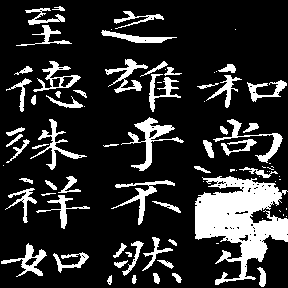 和尚出
之雄乎不然
至德殊祥如